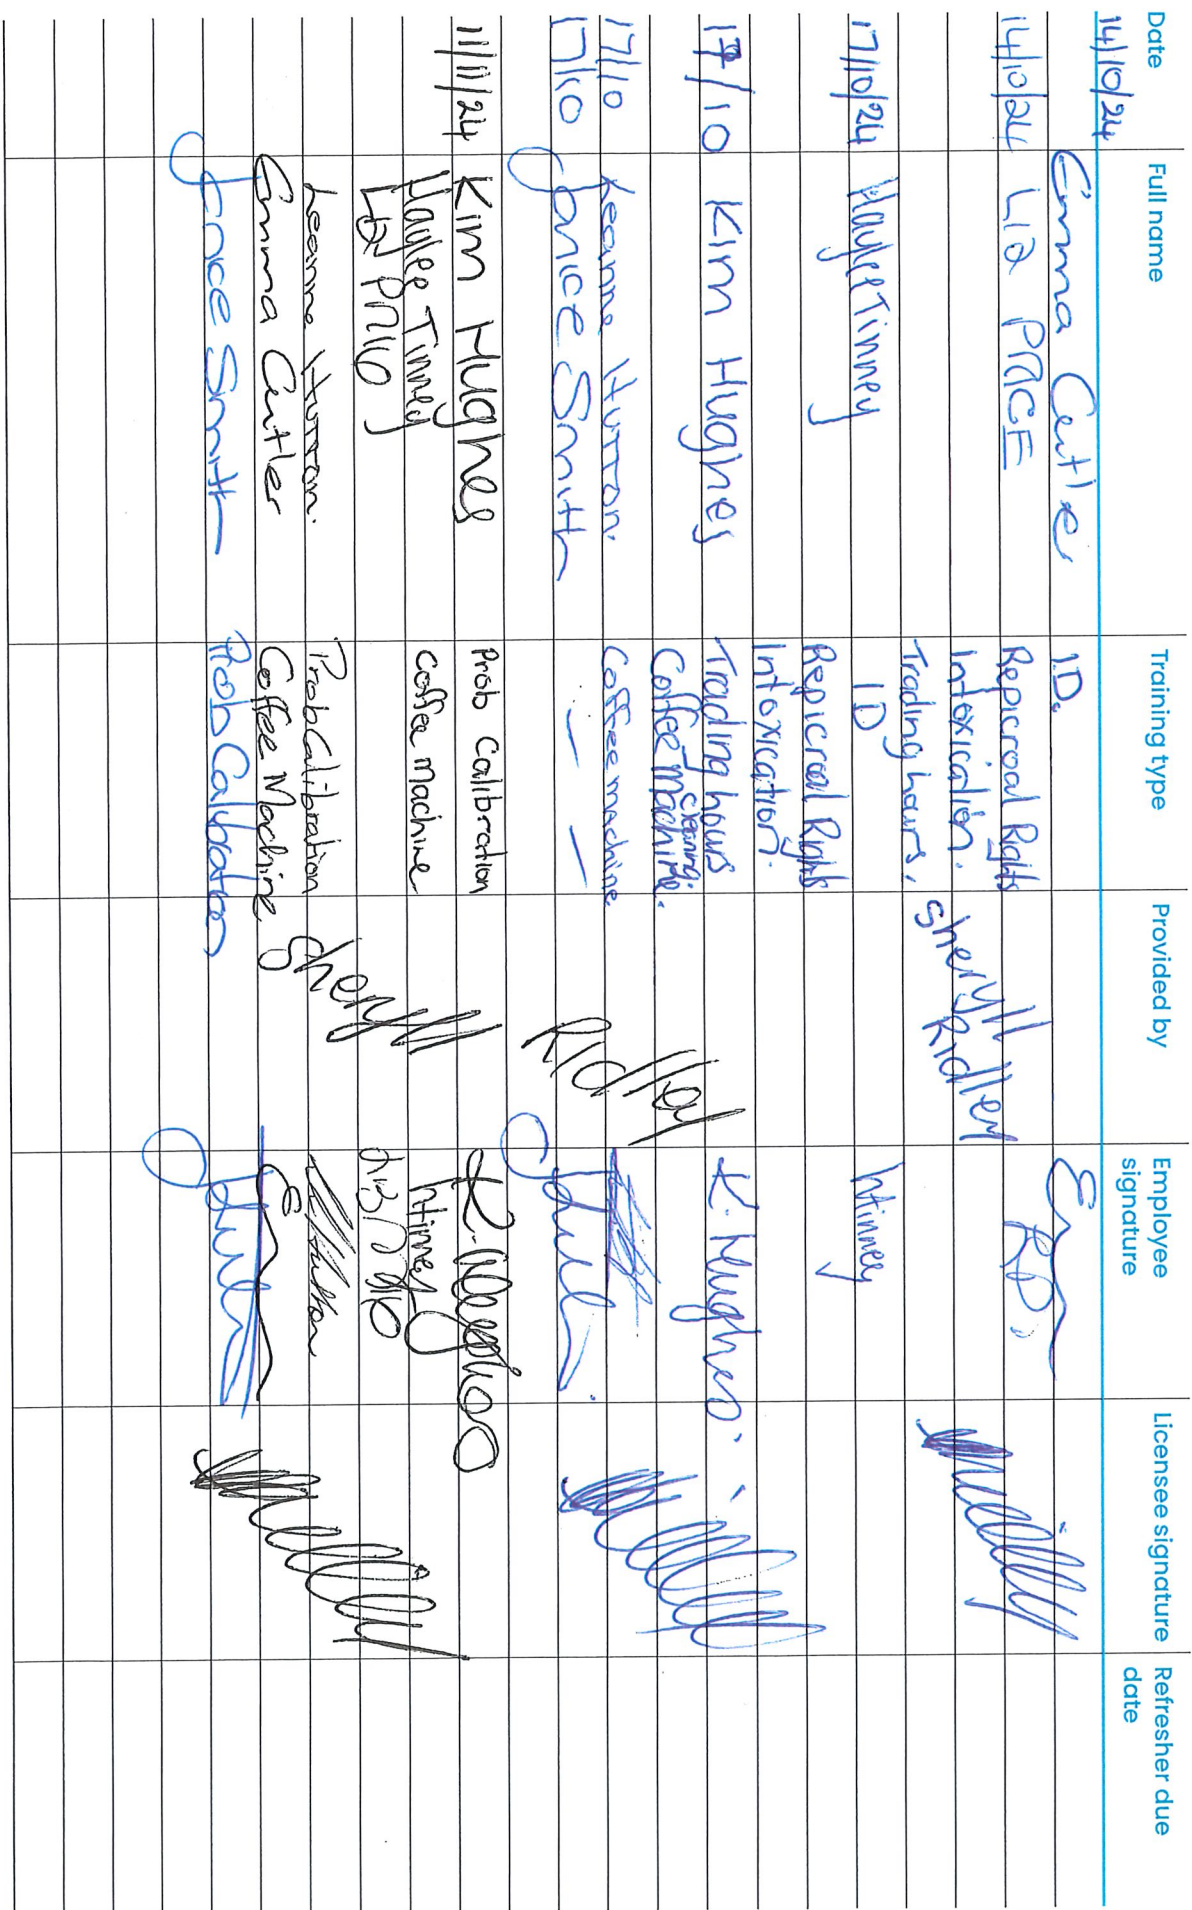 Date Full name Training type Provided by Employee signature Licensee signature Refresher due date
14/10/24 Emma Cutler I.D.
14/10/24 Liz PAGE Repicroal Rights
Intoxication. Sheryll Ridley
Trading hours.
17/10/24 Haylee Tinney ID htinney
Repicroal Rights
Intoxication.
17/10 Kim Hughes Trading hours K. Hughes
Coffee machine cleaning.
17/10 Leanne Hutton. Coffee machine
17/10 Janice Smith — — Ridley
11/11/24 Kim Hughes Prob Calibration K. Hughes
Haylee Tinney coffee machine Sheryll htinney
Leanne Hutton. Prob Calibration
Emma Cutler Coffee Machine
Janice Smith Prob Calibration